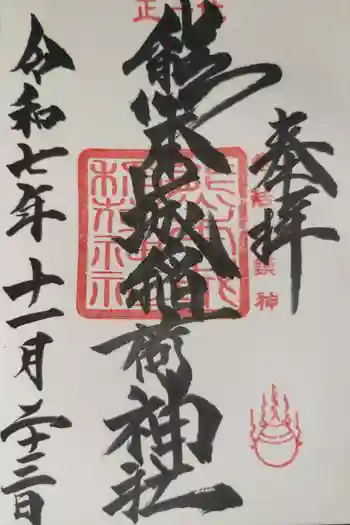 奉拝
熊本城稲荷神社
令和七年十一月二十三日